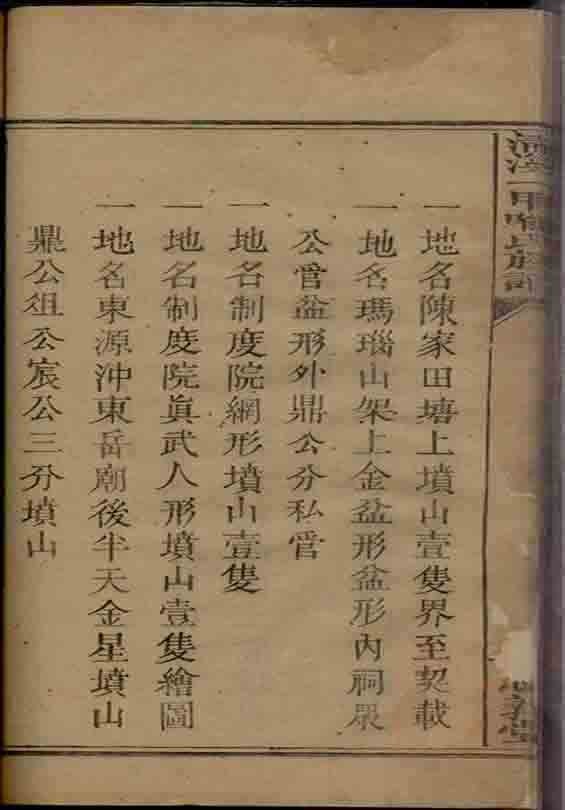 一地名陳家田塘上墳山壹隻界至契載
一地名瑪瑙山架上金盆形盆形內祠眾
公管盆形外鼎公分私管
一地名制度院網形墳山壹隻
一地名制度院眞武人形墳山壹隻繪圖
一地名東源沖東岳廟後半天金星墳山
鼎公俎公宸公三分墳山